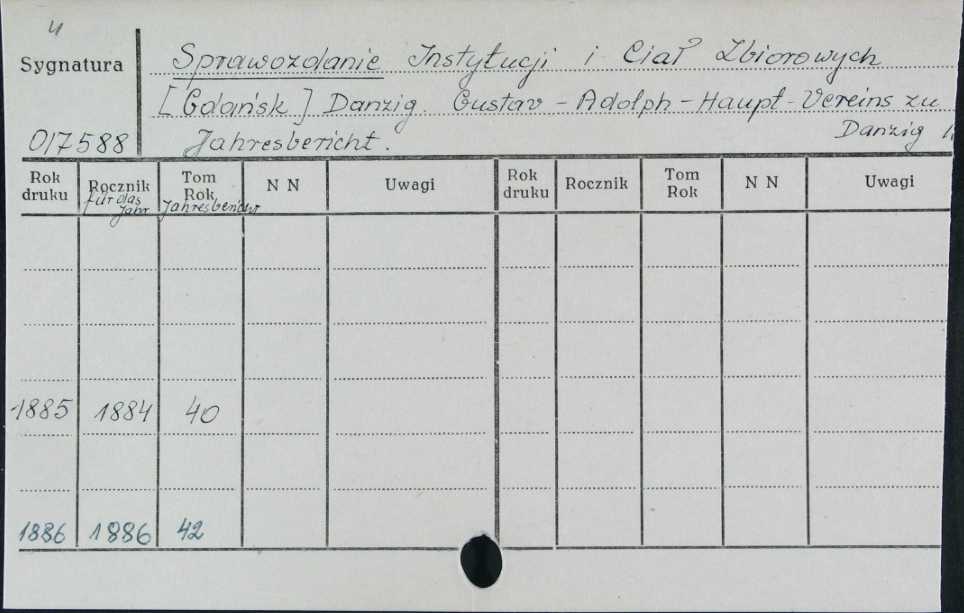 4
Sygnatura
Sprawozdanie Instytucji i Ciał Zbiorowych
[Gdańsk] Danzig. Gustav-Adolph-Haupt-Vereins zu
017588 Jahresbericht. Danzig
Rok druku Rocznik Tom Rok N N Uwagi Rok druku Rocznik Tom Rok N N Uwagi
für das Jahr Jahresbericht
1885 1884 40
1886 1886 42